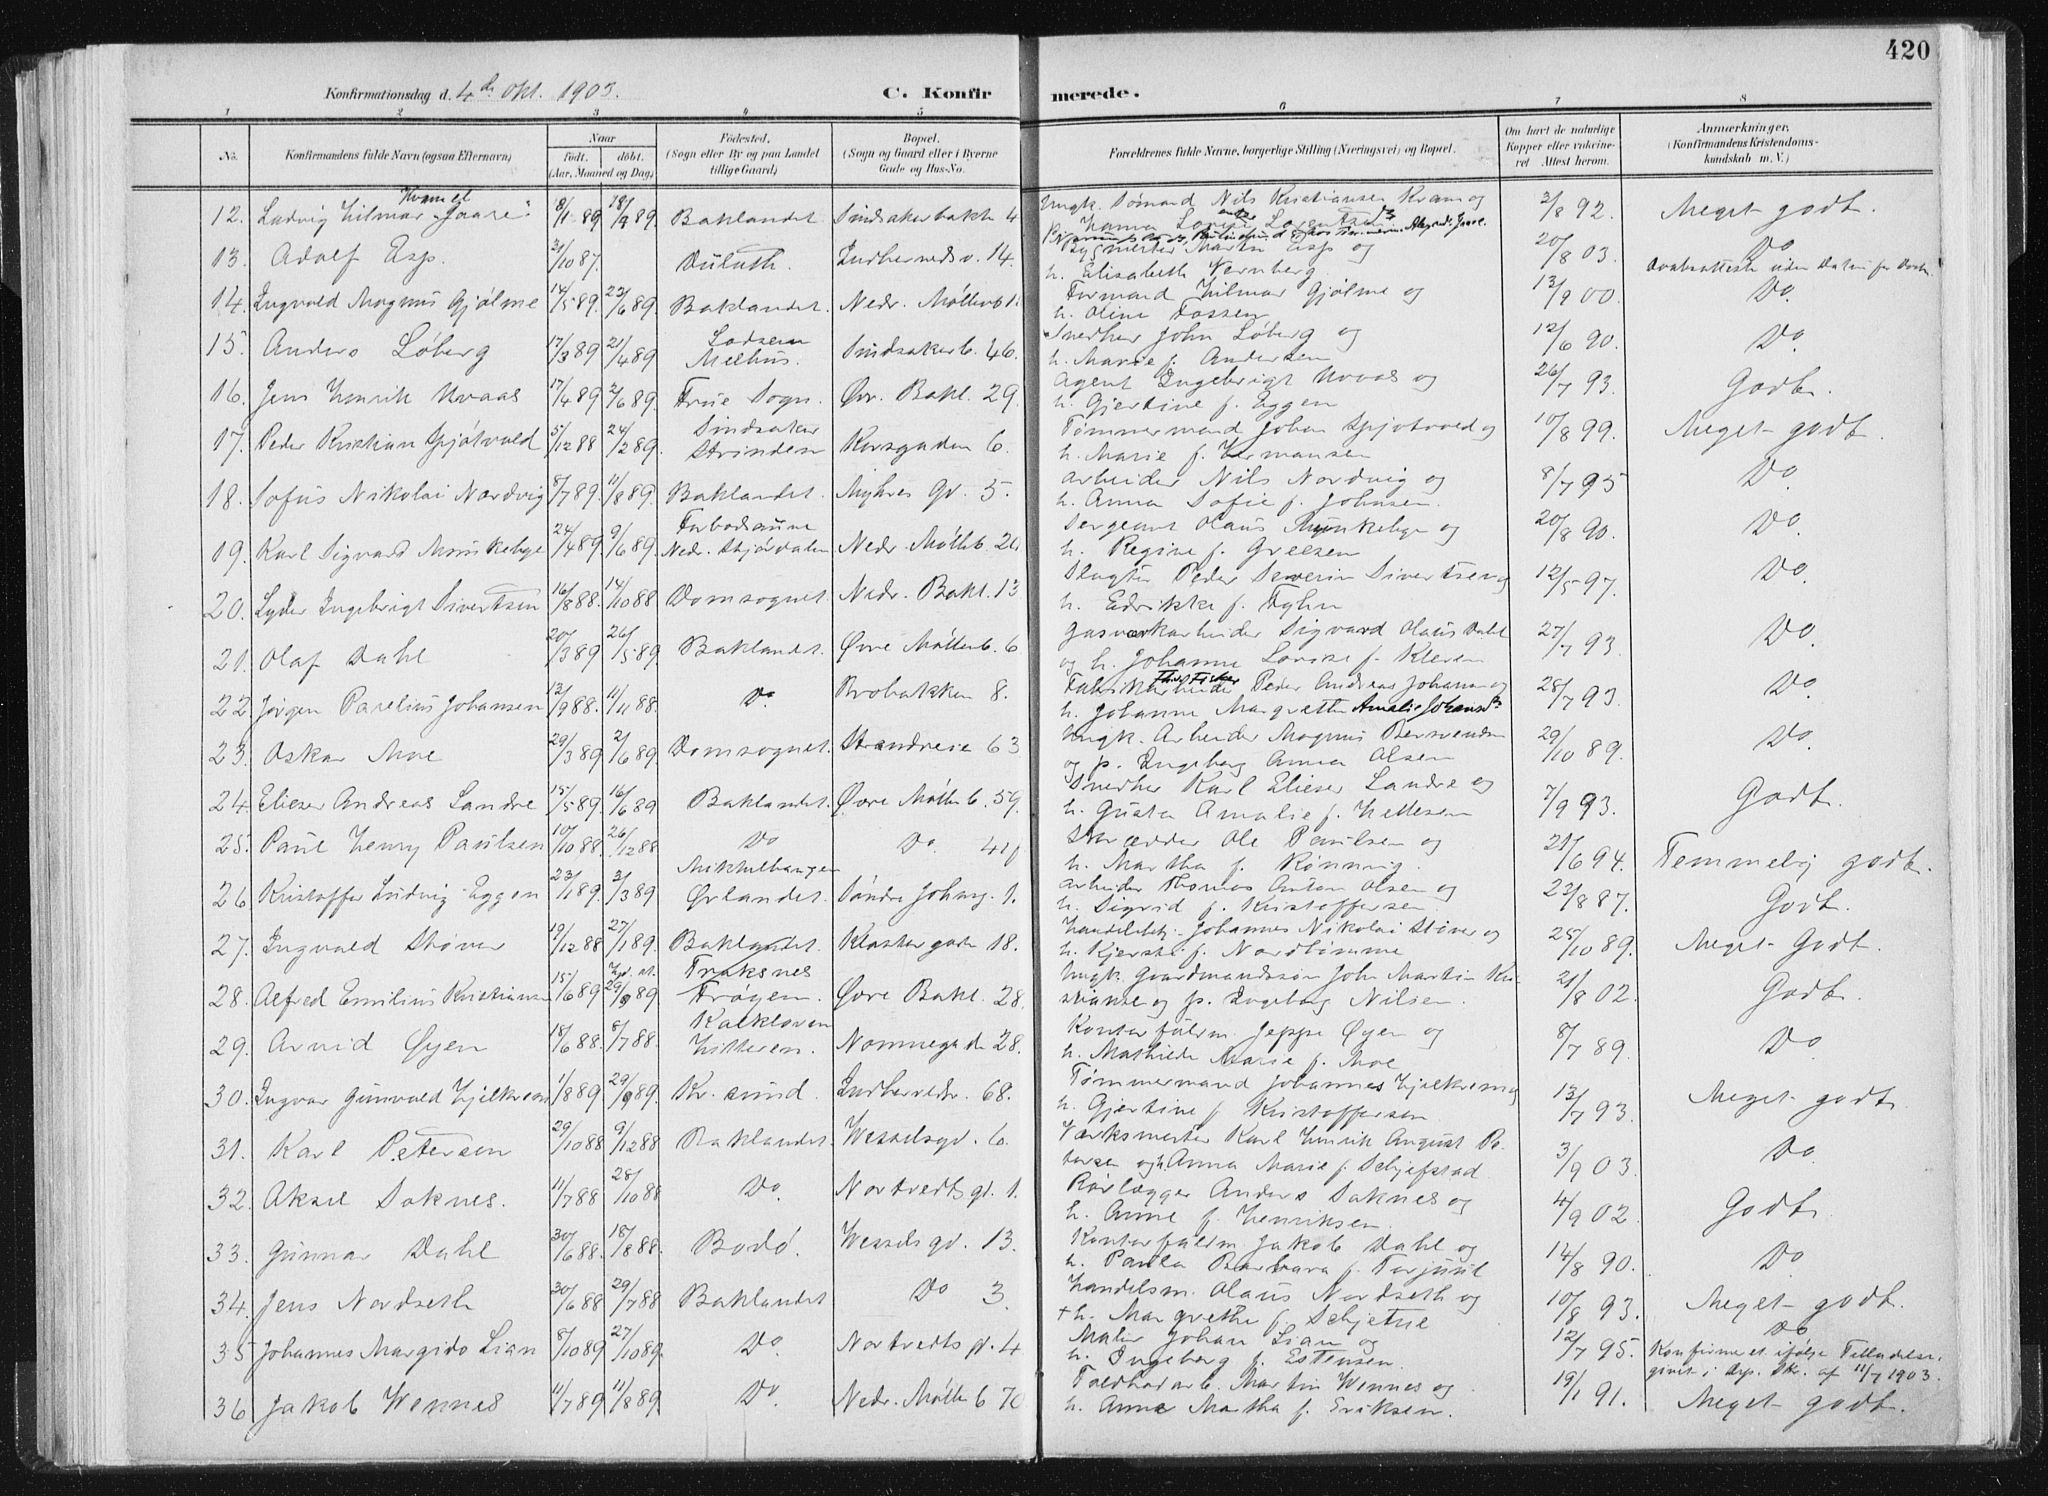 420
Konfirmationsdag d. 4de Okt. 1903.
C. Konfirmerede.
1 2 3 4 5 6 7 8
No.
Konfirmandens fulde Navn (ogsaa Efternavn)
Naar
födt. döbt.
(Aar, Maaned og Dag)
Födested.
(Sogn eller By og paa Landet
tillige Gaard)
Bopæl.
(Sogn og Gaard eller i Byerne
Gade og Hus-No.
Forældrenes fulde Navne, borgerlige Stilling (Næringsvei) og Bopæl.
Om havt de naturlige
Kopper eller vakcine-
ret Attest herom.
Anmærkninger.
(Konfirmandens Kristendoms-
kundskab m. V.)
12. Ludvig Hilmar "Jaare" 8/1 89 18/9 89 Baklandet Sindsakerbakk. 4 Ungk. Sömand Nils Kristiansen Kram og 3/8 92. Meget godt.
13. Adolf Esp. 31/10 87. Duluth. Indherredsv. 14. Bygmester Martin Esp og 20/8 03. Do
h. Elisabeth Nernberg.
14. Ingvald Magnus Gjölme 14/5 89. 23/6 89. Baklandet. Nedr. Mölleb. 1 Formand Hilmar Gjölme og 13/9 00. Do.
h. Oline Fossen
15. Anders Löberg 17/3 89 21/4 89 Melhus. Sindsakerb. 46. Snedker John Löberg og 12/6 90. Do.
h. Marie f. Andersen
16. Jens Henrik Uvaas 17/4 89 2/6 89. Frue Sogn. Övr. Bakl. 29. Agent Ingebrigt Uvaas og 26/7 93. Godt.
h. Gjertine f. Eggen
17. Peder Kristian Spjötvold 5/12 88 24/2 89. Sindsaker Strinden Korsgaden 6. Tömmermand Johan Spjötvold og 10/8 99. Meget godt.
h. Marie f. Hermansen
18. Sofus Nikolai Nordvig 8/7 89. 11/8 89. Baklandet. Myhres Gd. 5. Arbeider Nils Nordvig og 8/7 95 Do.
h. Anna Sofie f. Johnsen.
19. Karl Sigvard Munkebye 24/4 89 9/6 89. Forbodsaune Nedr. Stjördalen Nedr. Mölleb. 20. Sergeant Olaus Munkebye og 20/8 90. Do.
h. Regine f. Greesen
20. Lyder Ingebrigt Sivertsen 16/8 88. 14/10 88 Domsognet. Nedr. Bakl. 13 Slagter Peder Severin Sivertsen og 12/5 97. Do.
h. Edrikke f. Fyhn
21. Olaf Dahl 20/3 89 26/5 89 Baklandet. Övre Mölleb. 6 Gasverkarbeider Sigvard Olaus Dahl 27/7 93. Do
og h. Johanne Lovise f. Kleven
22 Jörgen Parelius Johansen 12/9 88. 11/11 88. Do. Brobakken 8. Fabrikarbeider Peder Andreas Johansen og 28/7 93. Do
h. Johanne Margrethe Amalie Johansd.
23. Oskar Moe 29/3 89 2/6 89 Domsognet. Strandveie 63 Ungk. Arbeider Magnus Bersvendsen 29/10 89. Do.
og p. Ingeborg Anna Olsen
24. Elieser Andreas Landre 15/5 89. 16/6 89 Baklandet. Övre Mölleb. 59. Snedker Karl Elieser Landre og 7/9 93. Godt.
h. Gusta Amalie f. Hellesen
25. Paul Henry Paulsen 10/10 88. 26/12 88 Do Do. 41 Skrædder Ole Paulsen og 21/6 94. Temmelig godt.
h. Martha f. Rönning.
26 Kristoffer Ludvig Eggen 23/1 89. 3/3 89 Mikkelhaugen Örlandet. Söndre Johansg. 1. Arbeider Thomas Anton Olsen og 23/8 87. Godt.
h. Sigrid f. Kristoffersen
27. Ingvald Stöver 19/12 88 27/1 89. Baklandet. Klostergate 18. Handelsb. Johannes Nikolai Stöver og 25/10 89. Meget Godt.
h. Kjersti f. Nordtömme
28. Alfred Emilius Kristiansen 15/6 89 29/9 89 Fraksnes Fröyen. Övre Bakl. 28. Ungk. Gaardmandssön John Martin Kri- 21/8 02. Godt.
stianse og p. Ingeborg Nilsen.
29. Arvid Öyen 18/6 88. 8/7 88 Kalkloven Hitteren. Nonnegade 28. Kontorfuldm. Jeppe Öyen og 8/7 89. Do.
h. Mathilde Marie f. Moe
30. Ingvar Gunvald Hjelkrem 1/8 89 29/9 89. Kr. sund. Indherredsv. 68. Tömmermand Johannes Hjelkrem og 13/7 93. Meget godt.
h. Gjertine f. Kristoffersen
31. Karl Petersen 29/10 88 9/12 88 Baklandet Wesselsgd. 6. Værksmester Karl Henrik August Pe- 3/9 03. Do.
tersen og h. Anna Marie f. Schjefstad
32. Aksel Soknes. 11/7 88 28/10 88 Do. Nortvedtsgd. 1. Rörlægger Anders Soknes og 4/9 02. Godt
h. Anne f. Henriksen.
33. Gunnar Dahl 30/6 88. 18/8 88. Bodö. Wesselsgd. 13. Kontorfuldm. Jakob Dahl og 14/8 90. Do
h. Paula Barbara f. Torjusel
34. Jens Nordseth 30/6 88 29/7 88 Baklandet Do 3. Handelsm. Olaus Nordseth og 10/8 93. Meget godt.
+ h. Margrethe f. Schjetne
35 Johannes Margido Lian 8/10 89 27/10 89. Do. Nortvedts gd. 4 Maler Johan Lian og 12/7 95. Do
h. Ingeborg f. Estensen.
Konfirmeret ifölge Tilladelse
givet i Dep. Skr. af 11/7 1903.
36 Jakob Wennes 11/7 89 11/8 89 Do. Nedr. Mölleb 70 Toldbodarb. Martin Wennes og 19/1 91. Meget godt.
h. Anne Martha f. Eriksen.